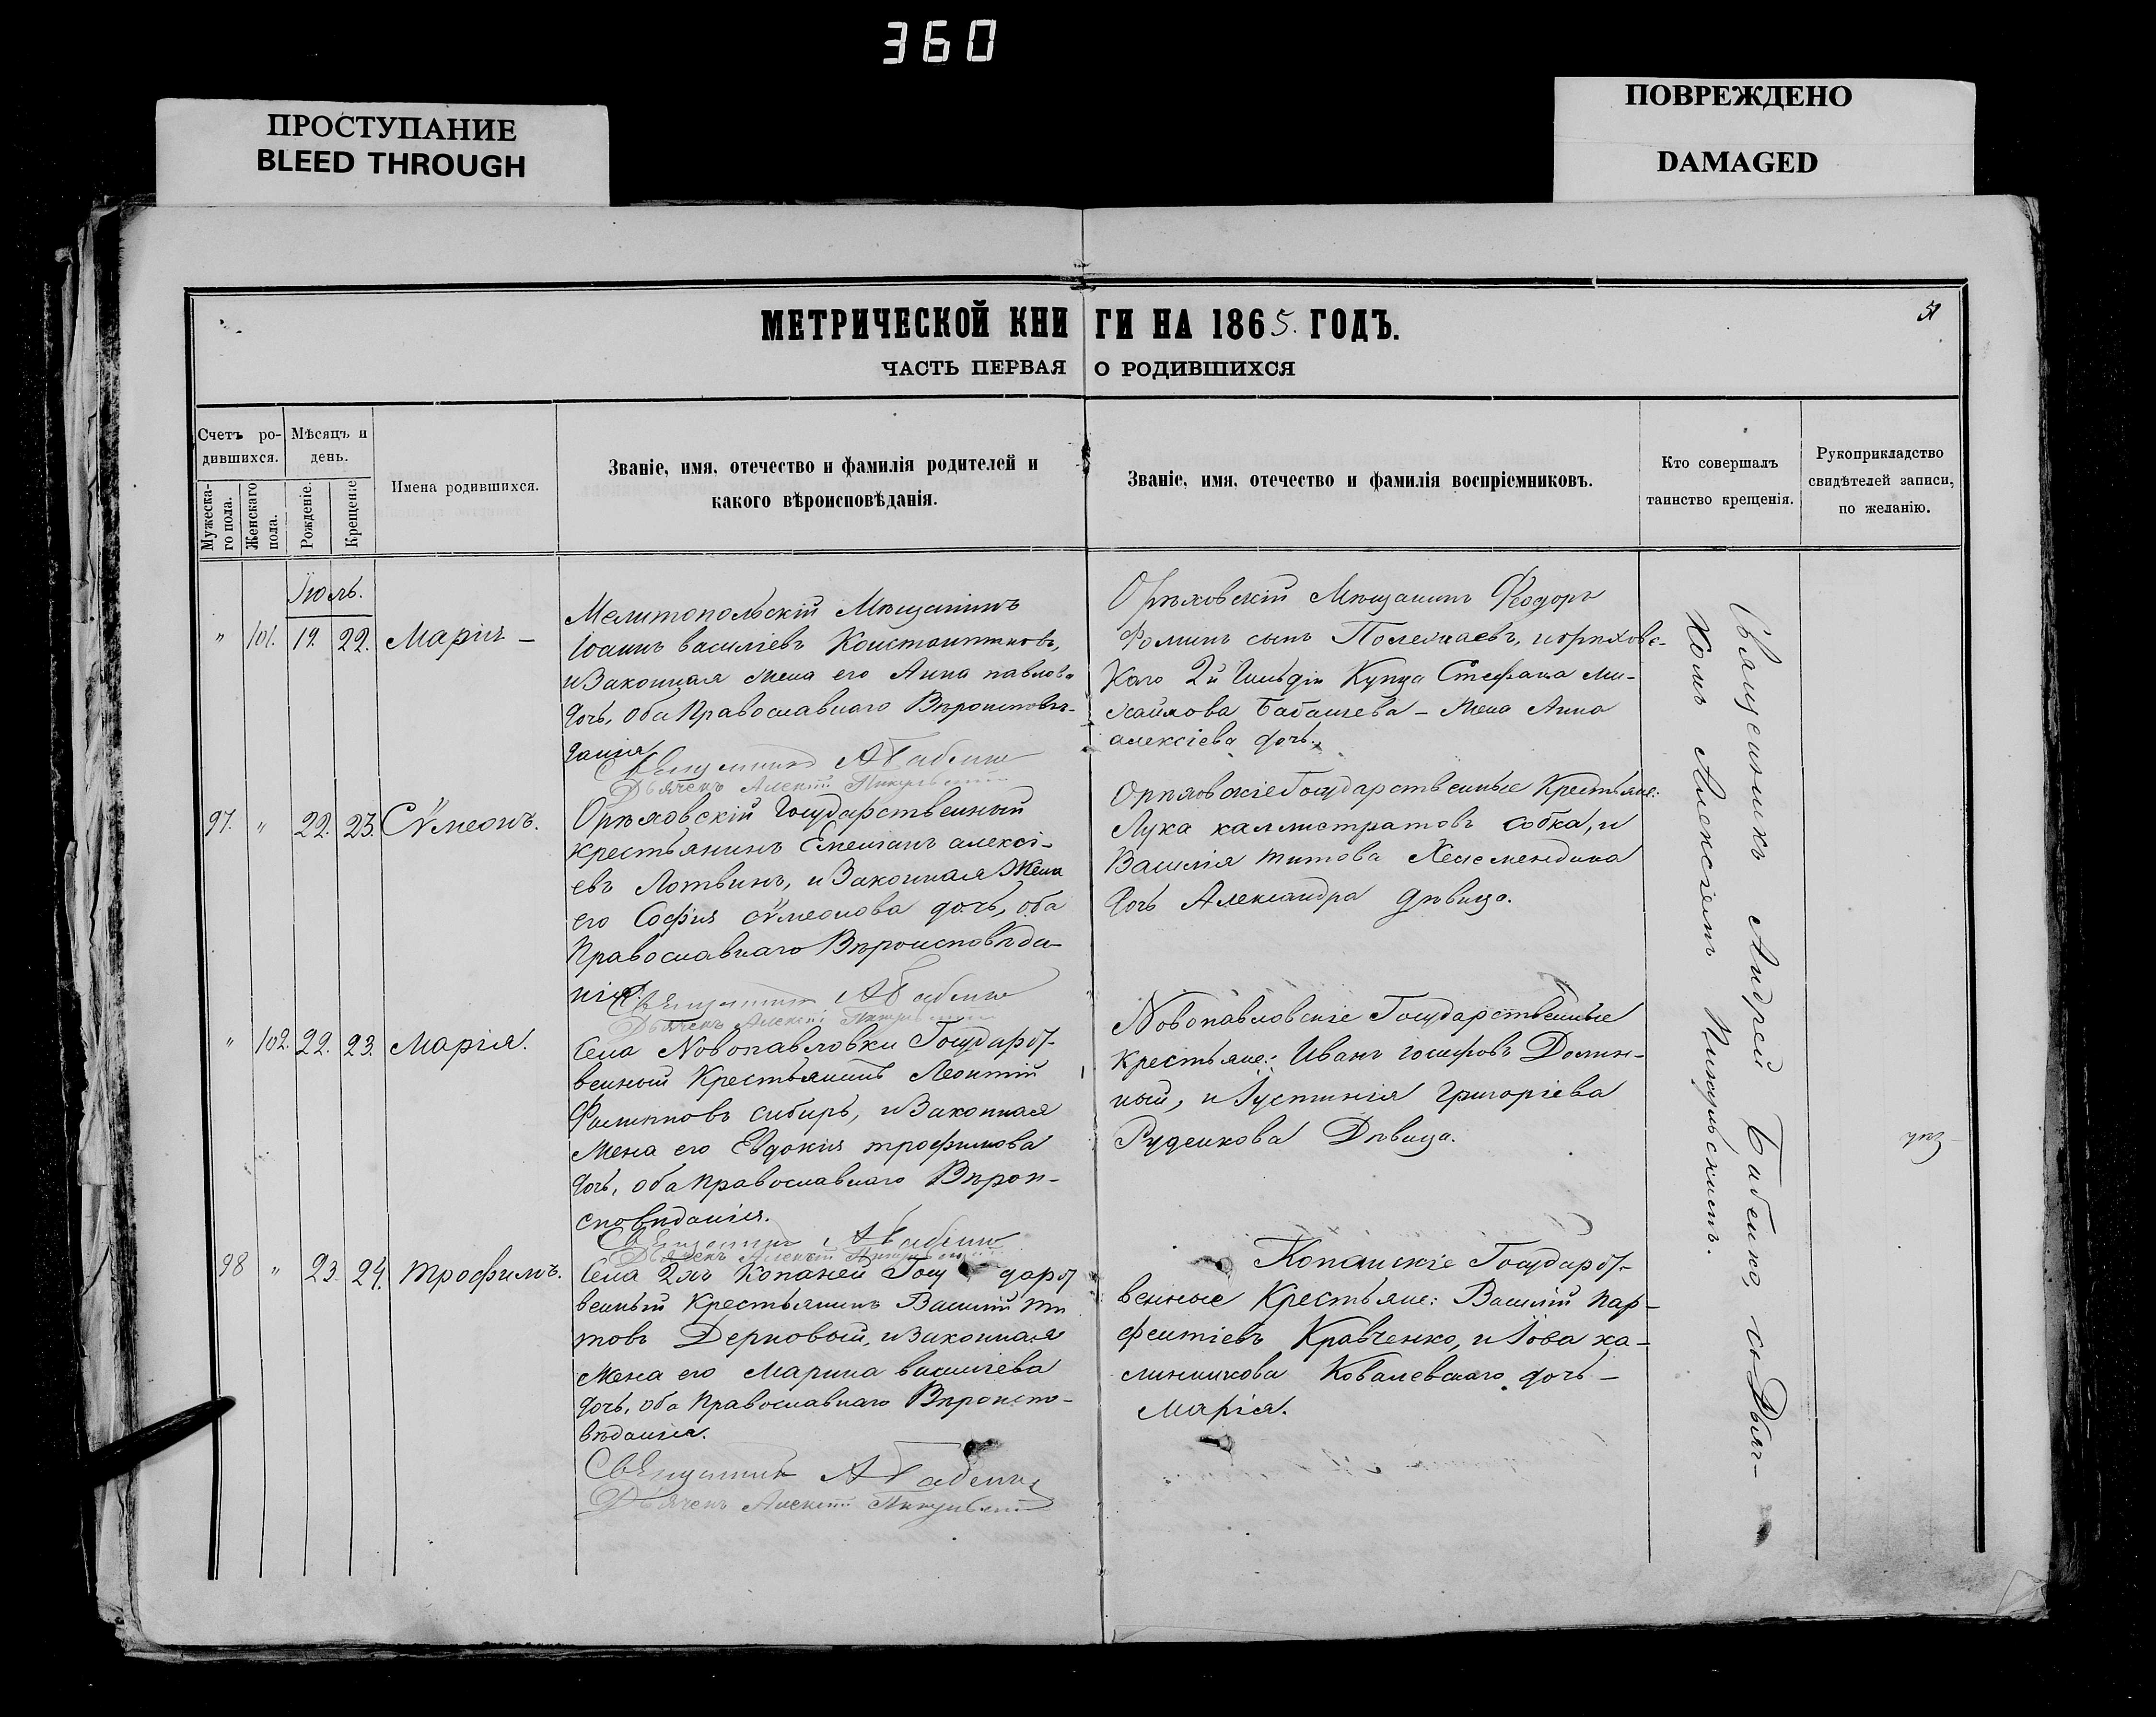 360
ПРОСТУПАНИЕ
BLEED THROUGH
ПОВРЕЖДЕНО
DAMAGED
МЕТРИЧЕСКОЙ КНИГИ НА 1865. ГОДЪ.
ЧАСТЬ ПЕРВАЯ О РОДИВШИХСЯ
Счетъ ро-
дившихся.
Мужеска-
го пола.
Женскаго
пола.
Мѣсяцъ и
день.
Рожденіе.
Крещеніе
Имена родившихся.
Званіе, имя, отечество и фамилія родителей и
какого вѣроисповѣданія.
Званіе, имя, отечество и фамилія воспріемниковъ.
Кто совершалъ
таинство крещенія.
Рукоприкладство
свидѣтелей записи,
по желанію.
Іюль.
" 101. 19. 22. Марія –
Мелитопольскій Мѣщанинъ
Іоаннъ васильевъ Константиновъ,
и Законная жена его Анна павлова
дочь, оба Православнаго Вѣроисповѣ-
данія
Священникъ А Бабенко
Дьячекъ Алексій
Орѣховскій Мѣщанинъ Феодоръ
Фоминъ сынъ Полежаевъ, и орѣховс-
каго 2й Гильдіи Купца Стефана Ми-
хайлова Бабачева – жена Анна
алексіева дочь.
97. " 22. 23. Сѵмеонъ.
Орѣховскій Государственный
крестьянинъ Емеліанъ алексі-
евъ Лотвинъ, и Законная Жена
его Софія сѵмеонова дочь, оба
Православнаго Вѣроисповѣда-
нія.
Священникъ А Бабенко
Дьячекъ Алексій
Орѣховскіе Государственные Крестьяне:
Лука каллистратовъ собка, и
Василія титова
дочь Александра дѣвица.
" 102. 22. 23. Марія.
Села Новопавловки Государст-
венный Крестьянинъ Леонтій
Филиповъ сибиръ, и Законная
жена его Евдокия трофимова
дочь, оба православнаго Вѣрои-
сповѣданія.
Священникъ А Бабенко
Дьячекъ Алексій
Новопавловскіе Государственные
крестьяне: Иванъ іосифовъ Долин-
ный, и Іустинія Григоріева
Руденкова Дѣвица.
98 " 23. 24. трофимъ.
Села 2хъ Копаней Государст
венный Крестьянинъ Василій ти
товъ Дерновый, и Законная
жена его Марина васильева
дочь, оба Православнаго Вѣроиспо-
вѣданія.
Священникъ А Бабенко
Дьячекъ Алексій
Копанскіе Государст-
венные Крестьяне: Василій пар-
фентіевъ Кравченко, и Іова ка-
линникова Ковалевскаго дочь –
Марія.
Священникъ Андрей Бабенко, съ Дьяч-
комъ Алексіемъ